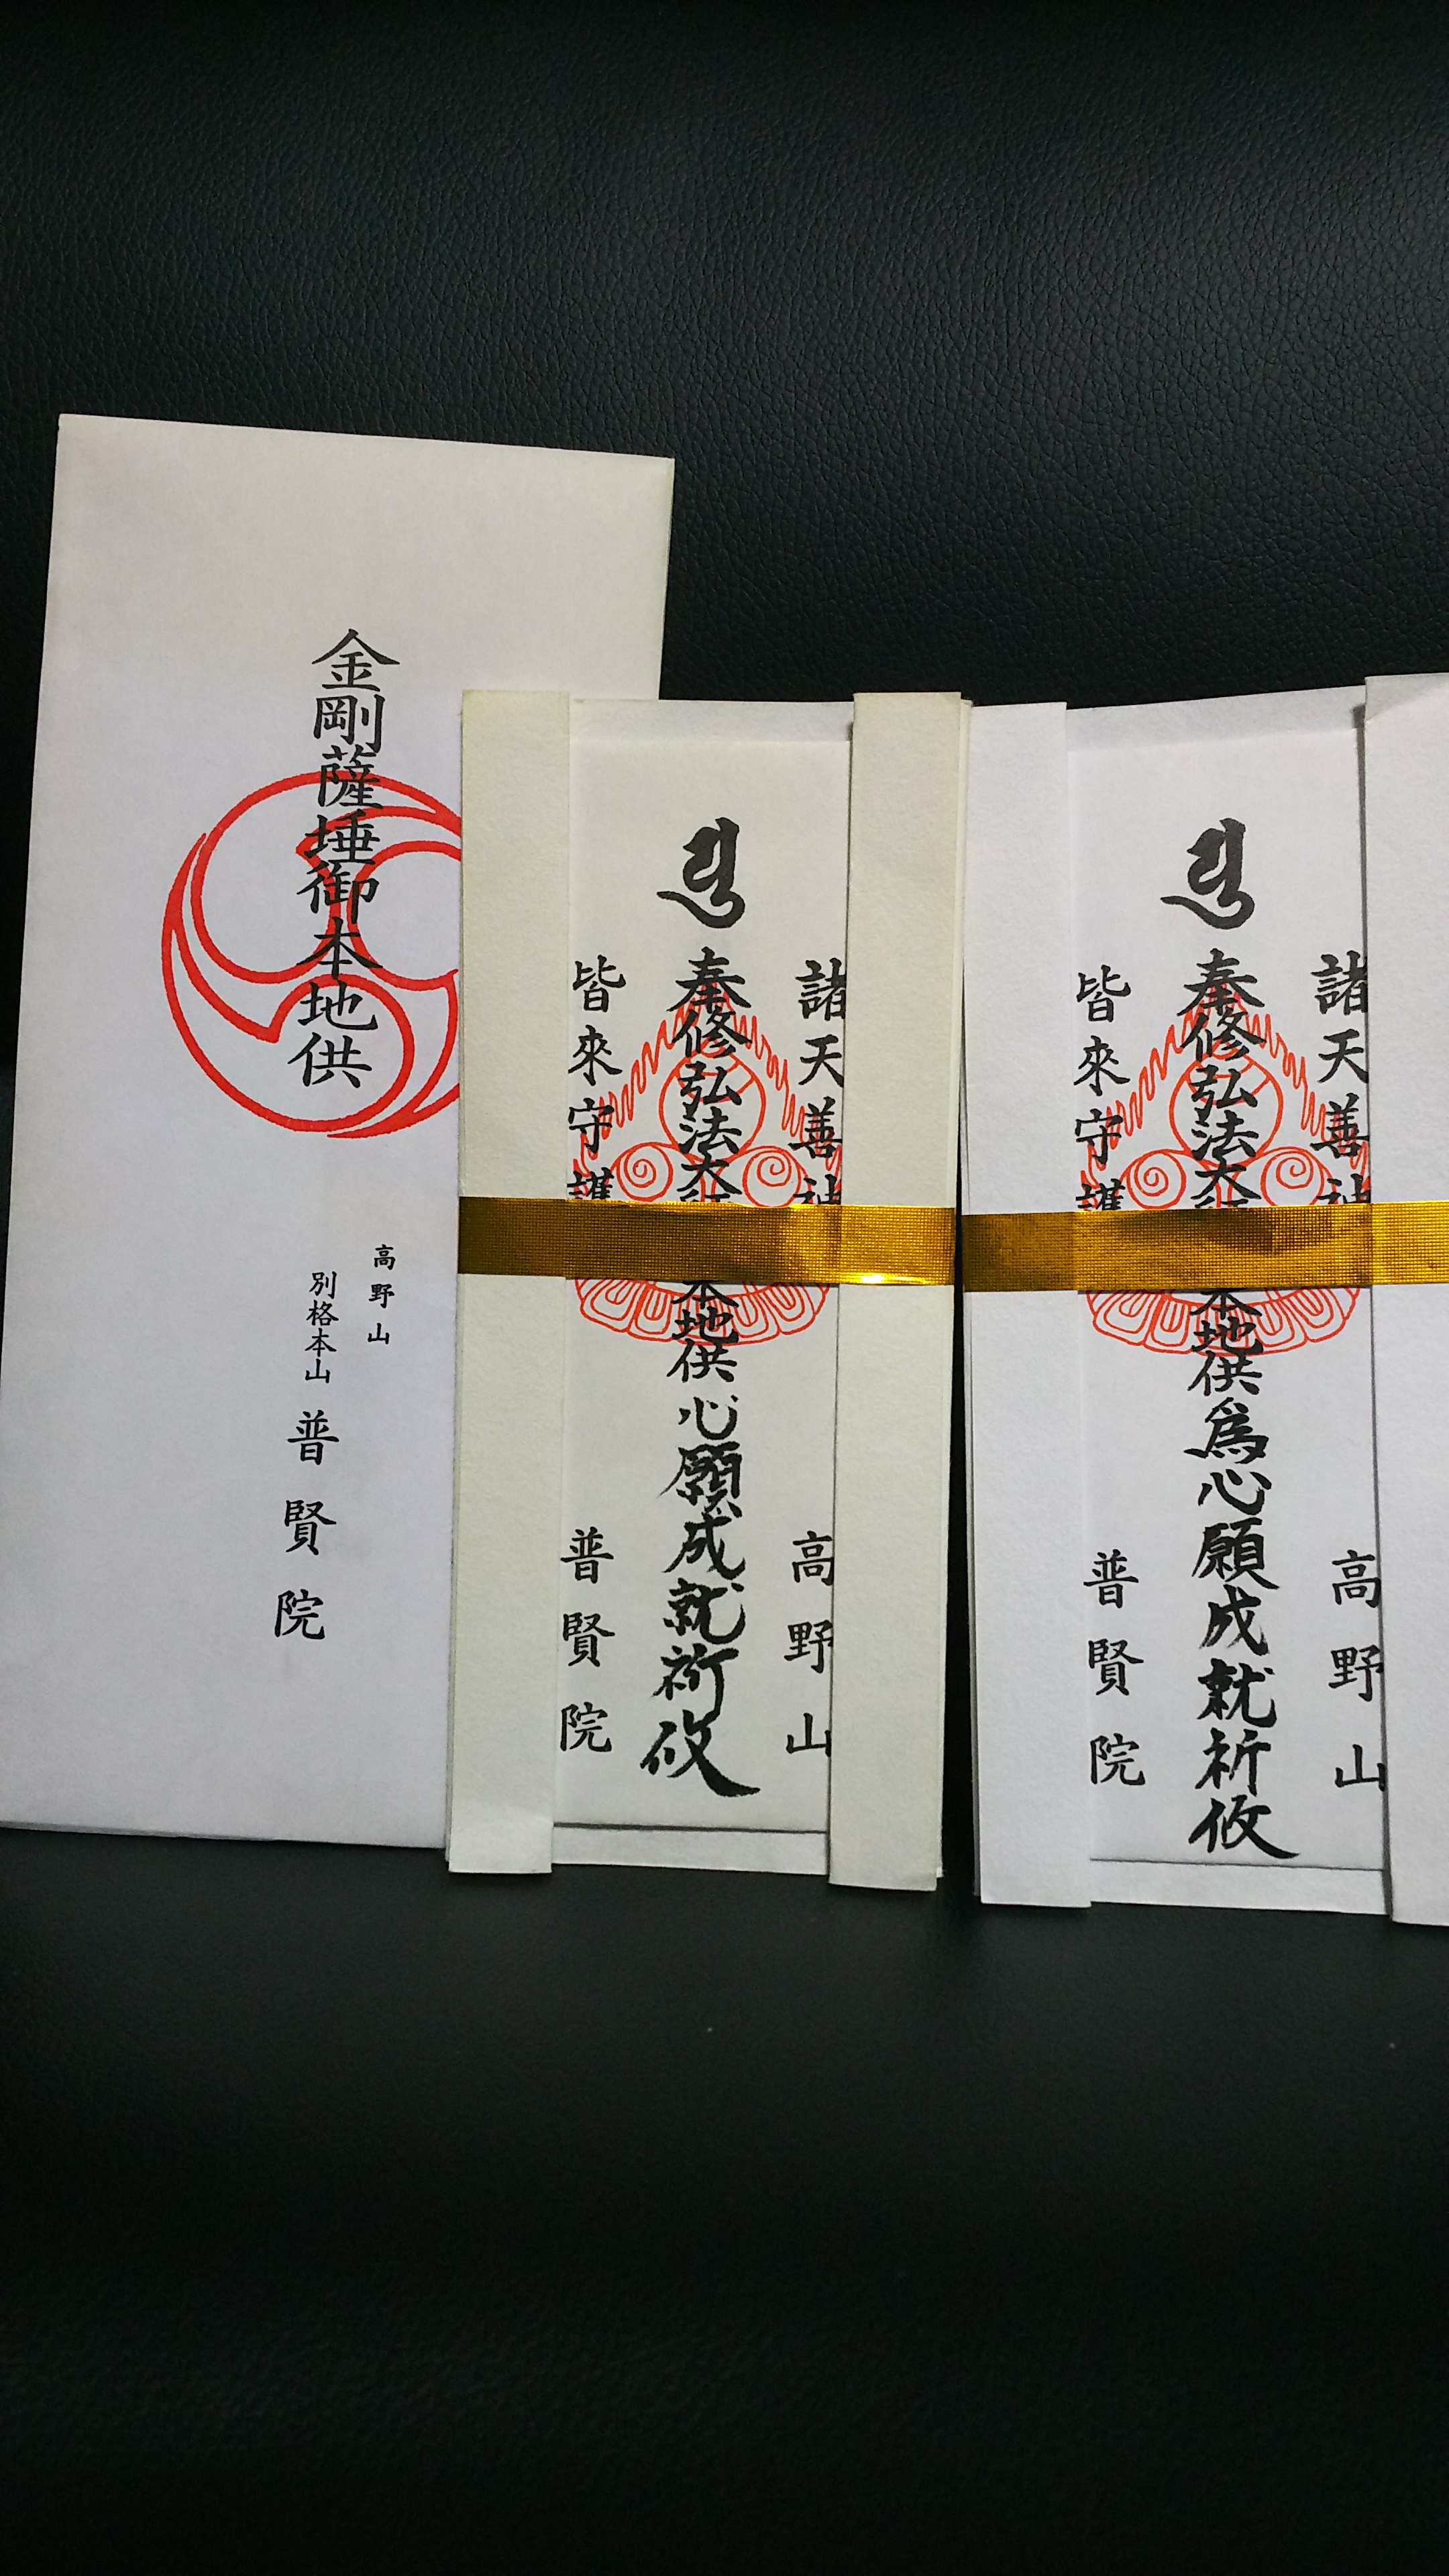 金剛薩埵御本地供
高野山
別格本山 普賢院
諸天善神
奉修弘法大師本地供心願成就祈攸
皆來守護
高野山
普賢院
諸天善神
奉修弘法大師本地供為心願成就祈攸
皆來守護
高野山
普賢院